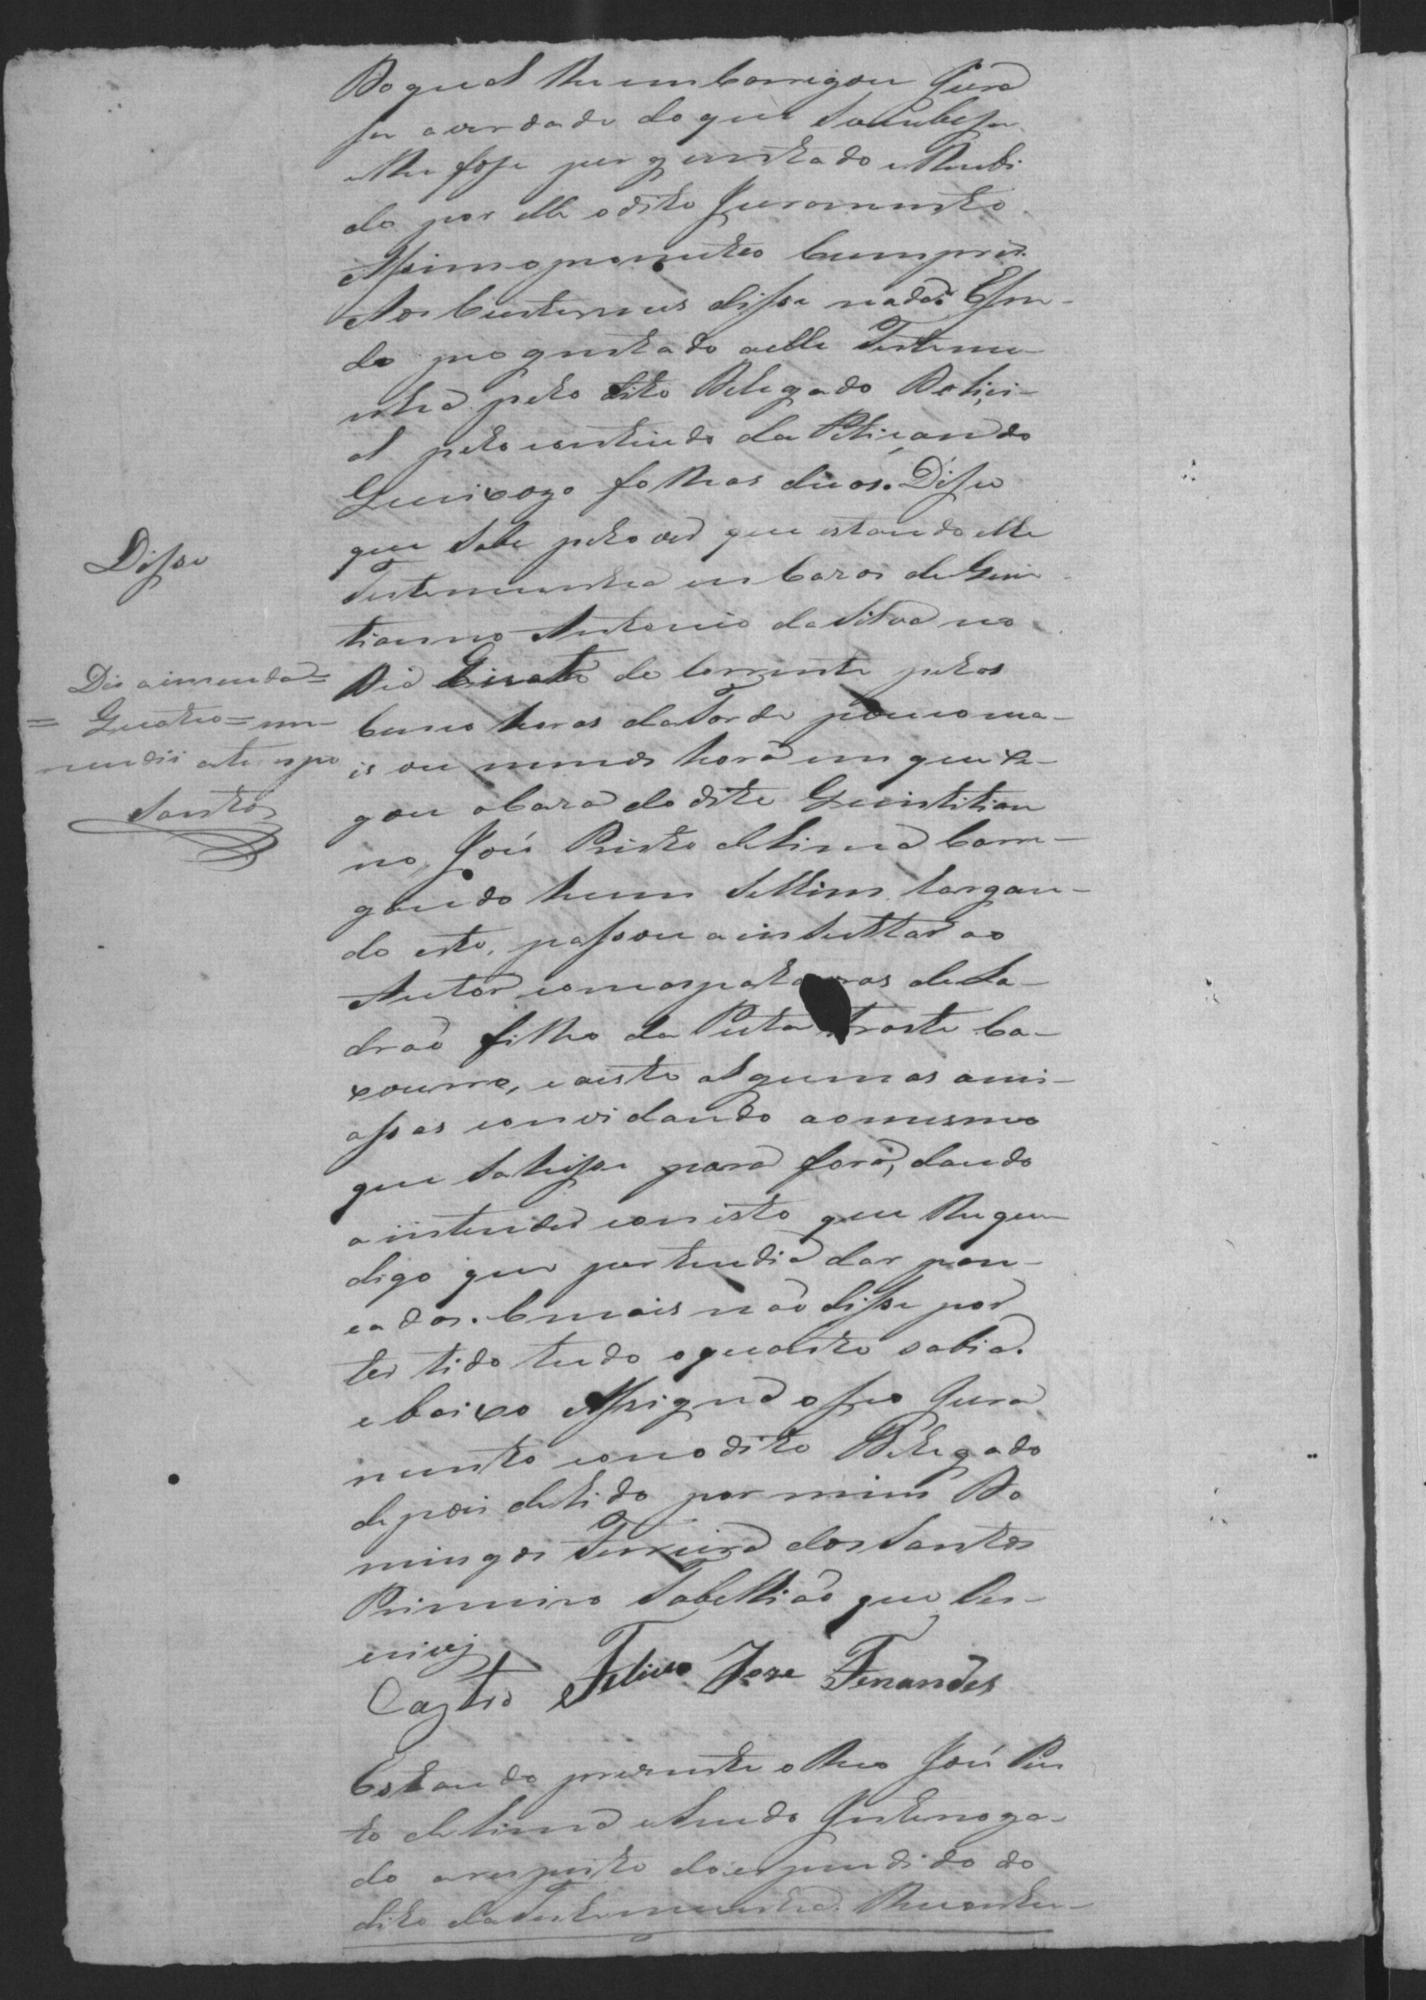 Do qual lhe emcarregou jura
se a verdade do que soubesse
e lhe fosse perguntado e Recebi
do por elle o dito Juramento
Assim o prometeo cumprir.
Aos custumes disse nada. E sen-
do preguntado a elle Testemu-
nha pelo dito Delegado Polici-
al pelo contiudo da Petiçam do
Queixozo folhas duas. Disse
que sabe pelo ver que estando elle
Testemunha em Caza de Quin
tianno Antonio da Silva no
Dia Quatro de Corrente pelas
cinco horas da Tarde pouco ma-
is ou menos hora em que xe-
gou a Caza do dito Quintilian
no, José Pinto de Lima Carre-
gando hum Sellim, largan-
do este, passou a insultar ao
Autor com as palavras de La-
drão filho da Puta Traste Ca-
xourro, e a este algumas ami-
assas convidando ao mesmo
que sahisse para fora, dando
a intender com isto que lhe que
digo que pertendia dar pan-
cadas. E mais não disse por
ter tido tudo o quanto sabia.
e baixo Assigna o seo Jura
mento com o dito Delegado
depois de lido por mim Do
mingos Ferreira dos Santos
Primeiro Tabellião que Es-
crivy
Castro Felico Joze Fernandes
Estando prezente o Reo José Pin
to de Lima e sendo Interroga-
do a respeito do espendido do
dito da Testemunha. Reconten-
Disse
Diz a imenda =
= Quatro = em
mendei a tempo
Santos